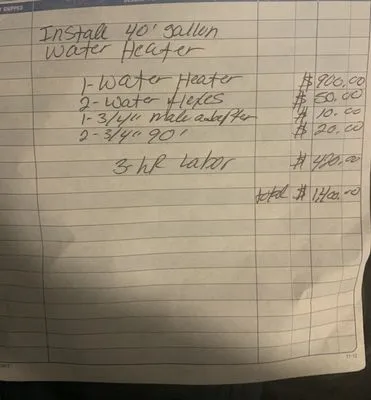 Install 40' gallon
Water Heater
1- Water Heater $ 900.00
2- Water flexes $ 50.00
1- 3/4" male adapter $ 10.00
2- 3/4" 90' $ 20.00
3-hR Labor $ 420.00
total $ 1,400.00